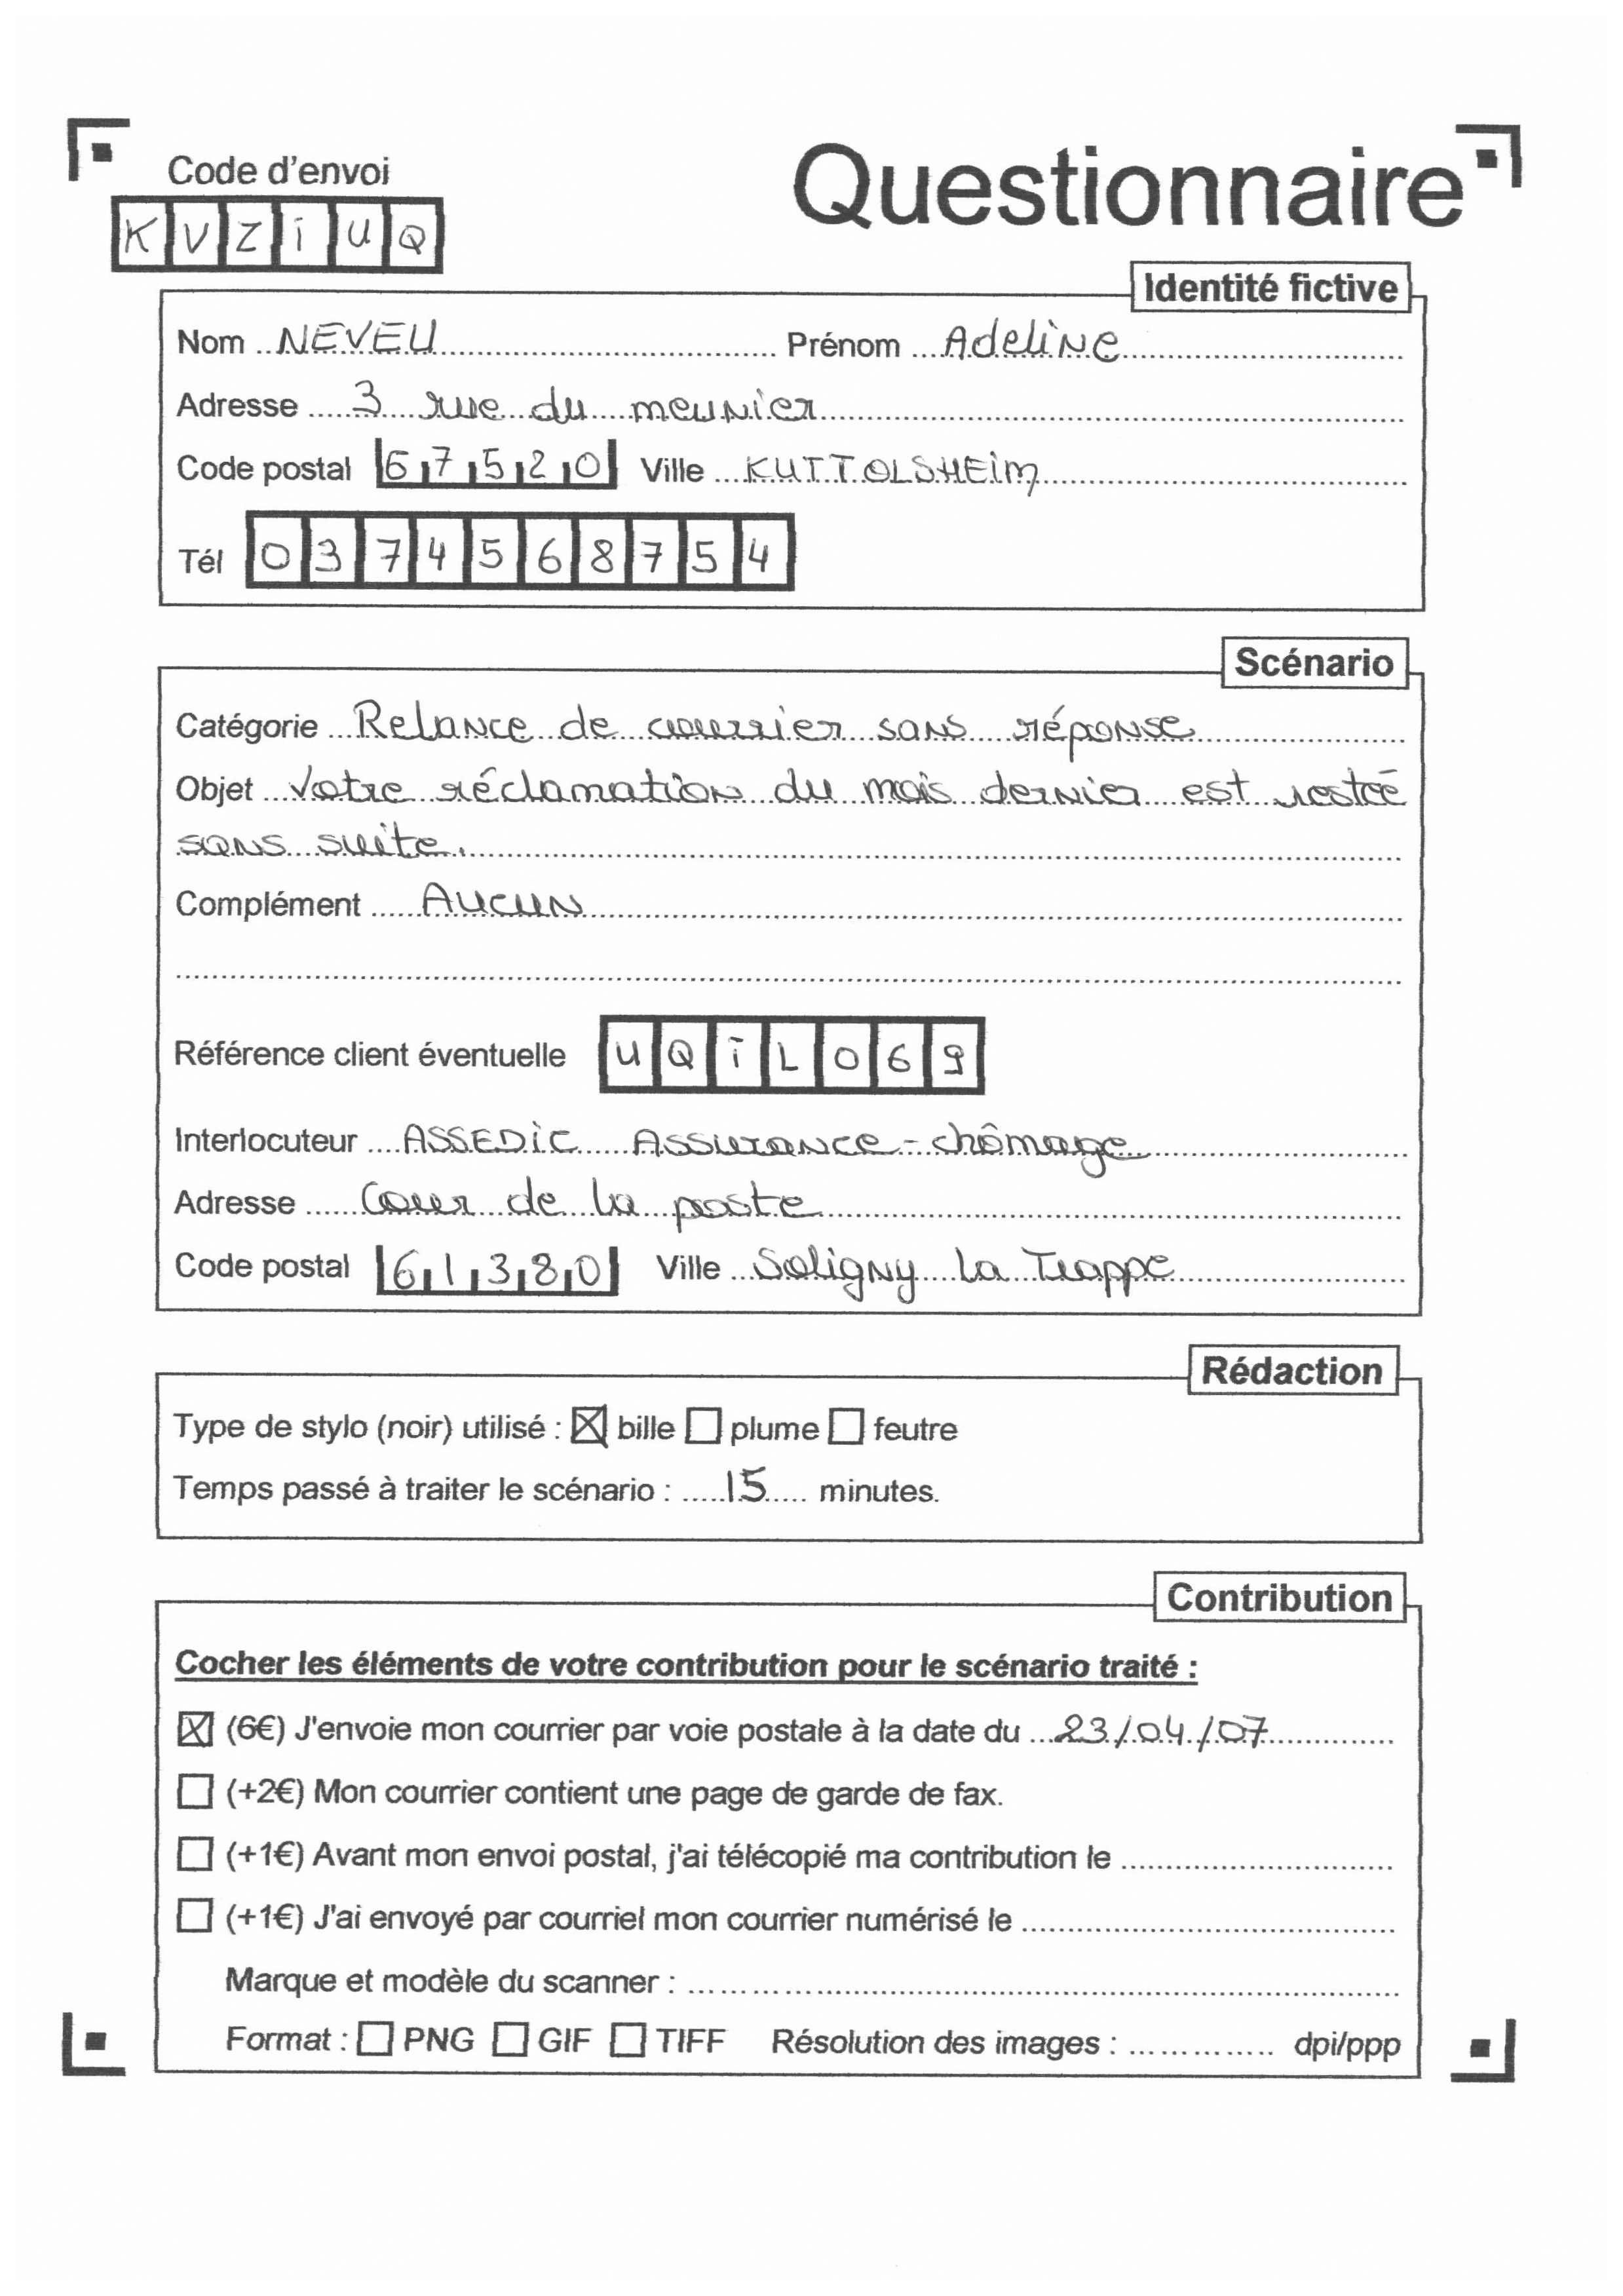 Code d'envoi
Questionnaire
KVZiUQ
Identité fictive
Nom NEVEU Prénom Adeline
Adresse 3 rue du meunier
Code postal 67520 Ville KUTTOLSHEim
Tél 0374568754
Scénario
Catégorie Relance de courrier sans réponse
Objet Votre réclamation du mois dernier est restée
sans suite.
Complément Aucun
Référence client éventuelle UQiL069
Interlocuteur ASSEDiC Assurance-chômage
Adresse Cour de la poste
Code postal 61380 Ville Soligny la Trappe
Rédaction
Type de stylo (noir) utilisé : ☒ bille ☐ plume ☐ feutre
Temps passé à traiter le scénario : 15 minutes.
Contribution
Cocher les éléments de votre contribution pour le scénario traité :
☒ (6€) J'envoie mon courrier par voie postale à la date du 23/04/07
☐ (+2€) Mon courrier contient une page de garde de fax.
☐ (+1€) Avant mon envoi postal, j'ai télécopié ma contribution le
☐ (+1€) J'ai envoyé par courriel mon courrier numérisé le
Marque et modèle du scanner :
Format : ☐ PNG ☐ GIF ☐ TIFF Résolution des images : dpi/ppp